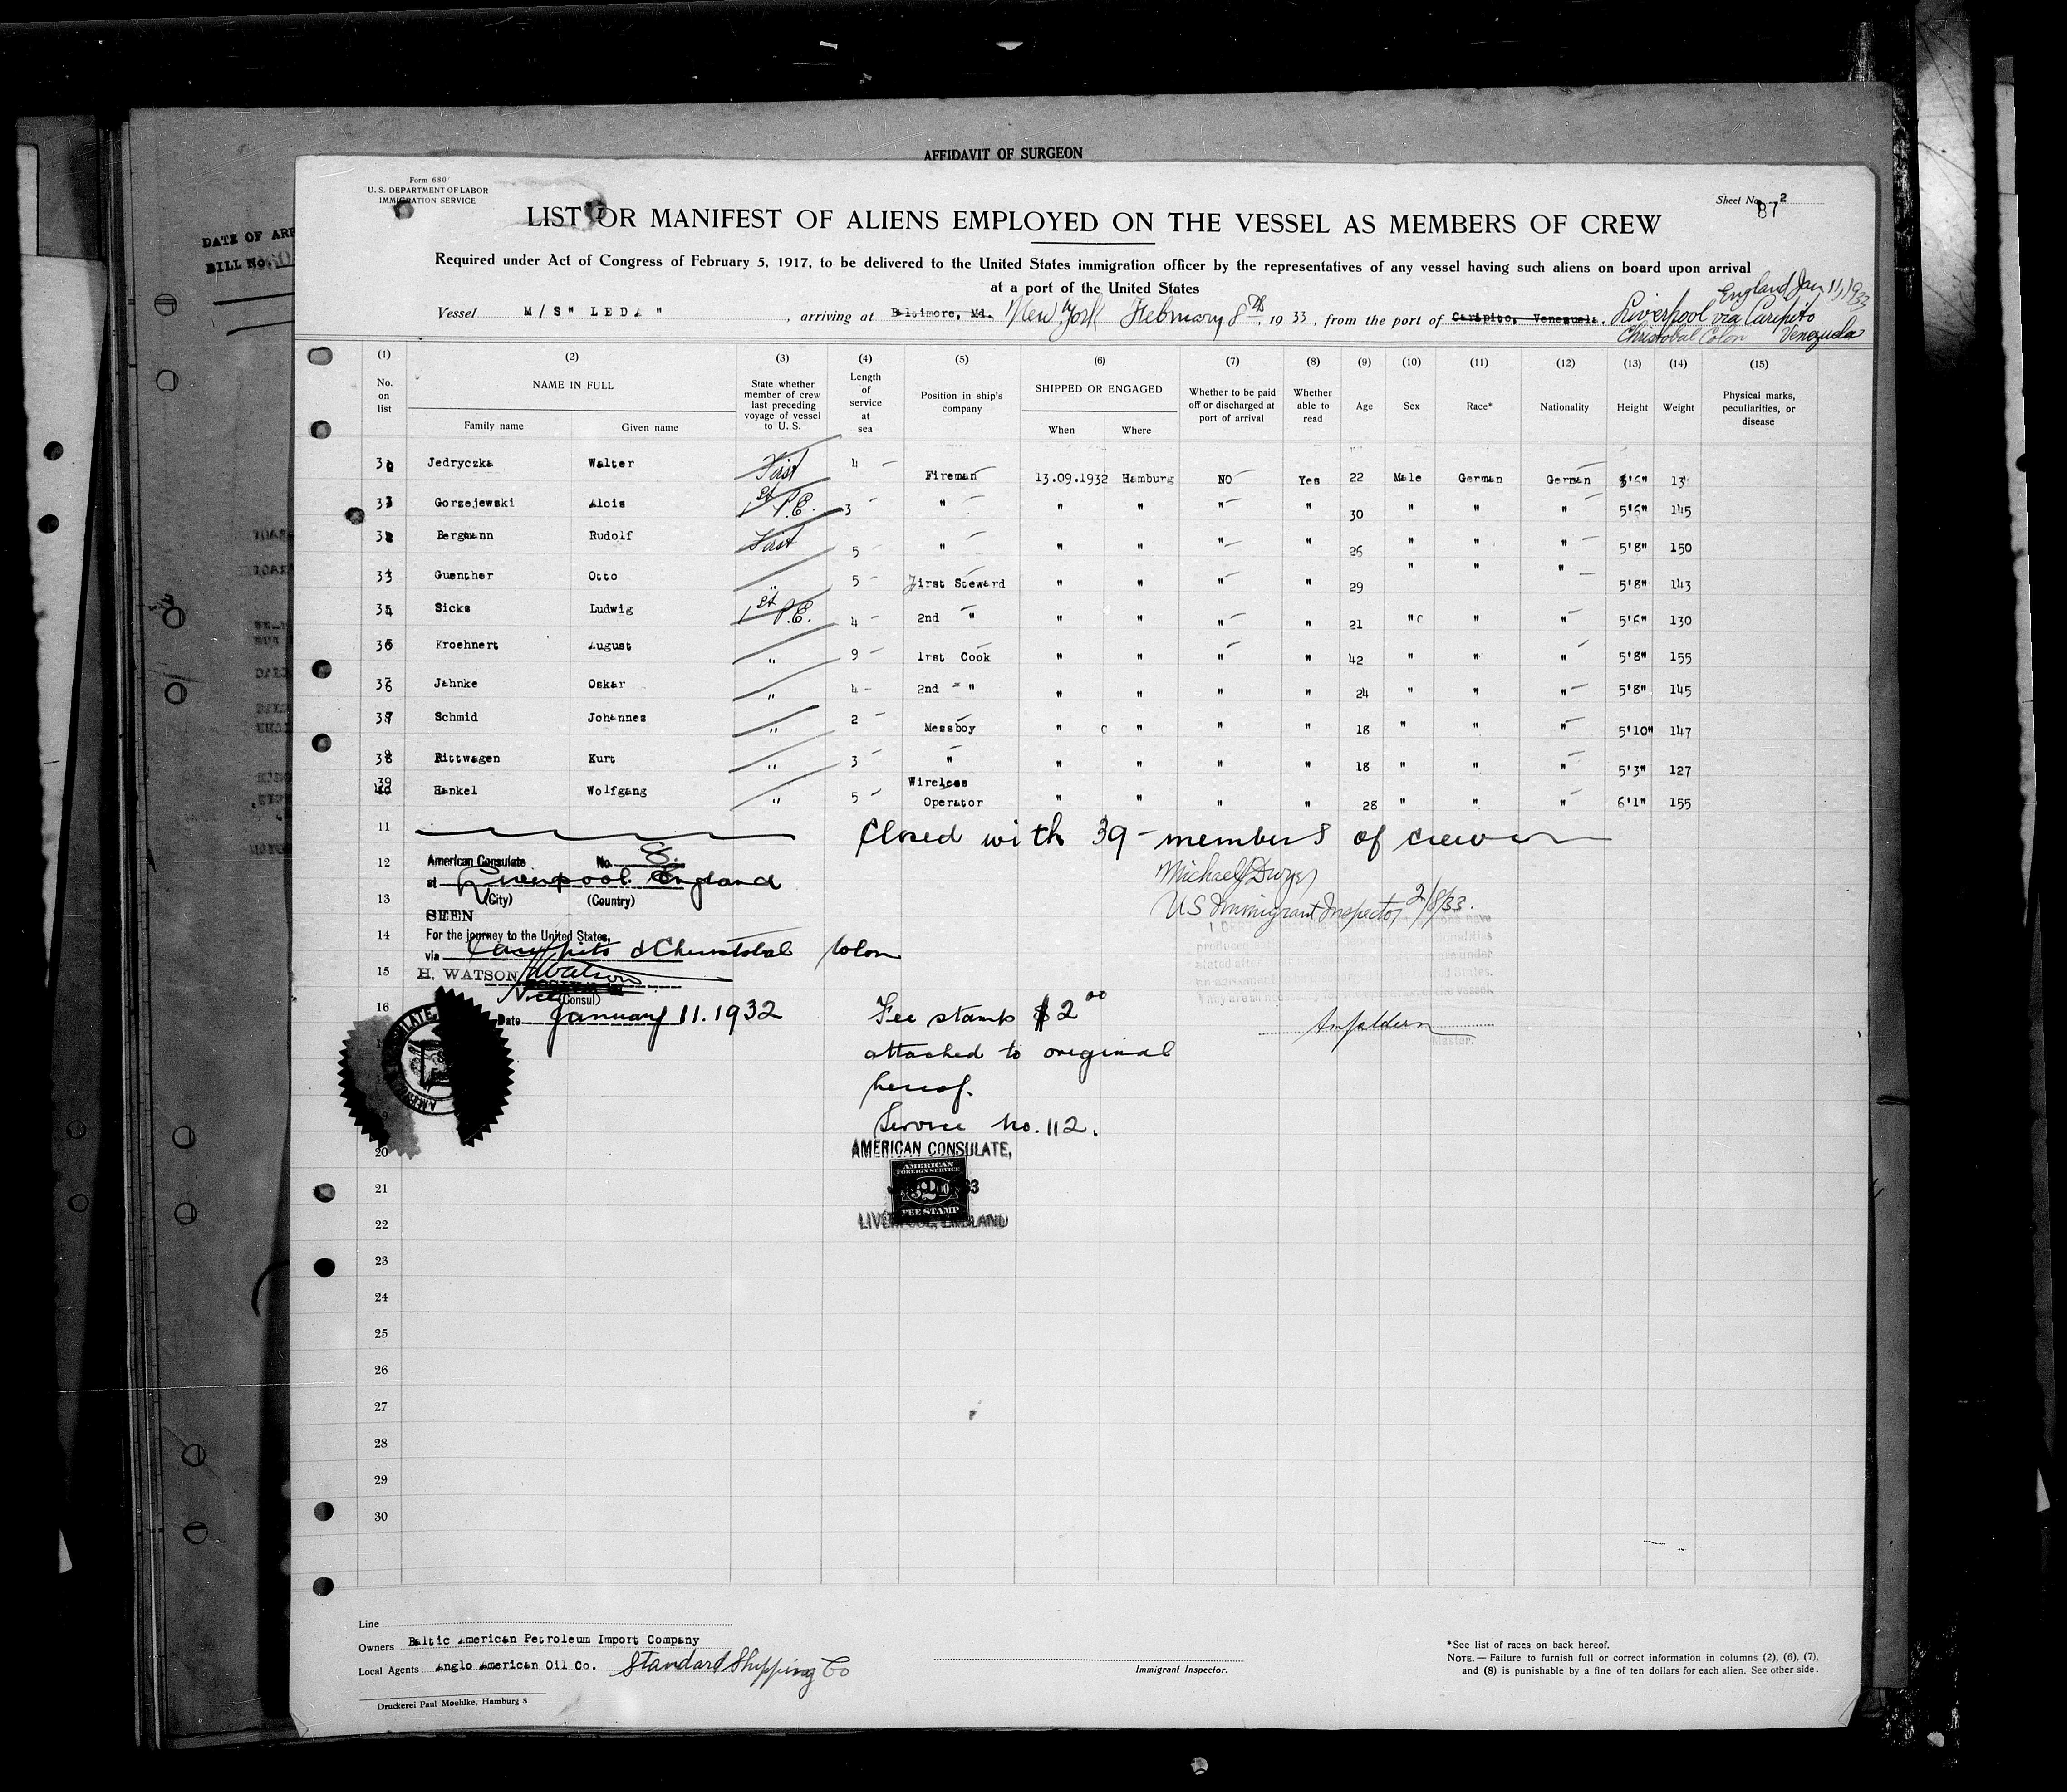 AFFIDAVIT OF SURGEON
Form 680
U. S. DEPARTMENT OF LABOR
IMMIGRATION SERVICE
Sheet No. 2
87
LIST OR MANIFEST OF ALIENS EMPLOYED ON THE VESSEL AS MEMBERS OF CREW
Required under Act of Congress of February 5, 1917, to be delivered to the United States immigration officer by the representatives of any vessel having such aliens on board upon arrival
at a port of the United States
England Jan 11, 1933
Vessel M/S " LEDA " , arriving at Baltimore, Md. New York February 8th 19 33, from the port of Caripito, Venezuela. Liverpool via Caripito
Christobal Colon Venezuela
DATE OF ARR
BILL No.
(1) (2) (3) (4) (5) (6) (7) (8) (9) (10) (11) (12) (13) (14) (15)
No. on list NAME IN FULL Family name Given name State whether member of crew last preceding voyage of vessel to U. S. Length of service at sea Position in ship's company SHIPPED OR ENGAGED When Where Whether to be paid off or discharged at port of arrival Whether able to read Age Sex Race* Nationality Height Weight Physical marks, peculiarities, or disease
Jedryczka Walter First 4 Fireman 13.09.1932 Hamburg NO Yes 22 Male German German 5'6"
Gorzejewski Alois 1st P.E. 3 " " " " " 30 " " " 5'6" 145
Bergmann Rudolf First 5 " " " " " 26 " " " 5'8" 150
Guenther Otto " 5 First Steward " " " " 29 " " " 5'8" 143
Sicks Ludwig 1st P.E. 4 2nd " " " " " 21 " " " 5'6" 130
Kroehnert August " 9 1rst Cook " " " " 42 " " " 5'8" 155
Jahnke Oskar " 4 2nd " " " " " 24 " " " 5'8" 145
Schmid Johannes " 2 Messboy " " " " 18 " " " 5'10" 147
Rittwagen Kurt " 3 " " " " " 18 " " " 5'3" 127
39 Hankel Wolfgang " 5 Wireless Operator " " " " 28 " " " 6'1" 155
11 Closed with 39 - members of crew
12 American Consulate No. 8.
at Liverpool England
13 (City) (Country)
Michael J Dwyer
US Immigrant Inspector 2/8/33.
SEEN
14 For the journey to the United States,
via Caripito & Christobal Colon
15 H. WATSON
Vice (Consul)
16 Date January 11. 1932
Fee stamp $2 00
attached to original
hereof.
Service No. 112.
Master.
20 AMERICAN CONSULATE,
AMERICAN
FOREIGN SERVICE
21 $2.00
FEE STAMP
22 LIVERPOOL, ENGLAND
23
24
25
26
27
28
29
30
Line
Owners Baltic American Petroleum Import Company
Local Agents Anglo American Oil Co. Standard Shipping Co
Immigrant Inspector.
*See list of races on back hereof.
NOTE. — Failure to furnish full or correct information in columns (2), (6), (7),
and (8) is punishable by a fine of ten dollars for each alien. See other side.
Druckerei Paul Moehlke, Hamburg 8